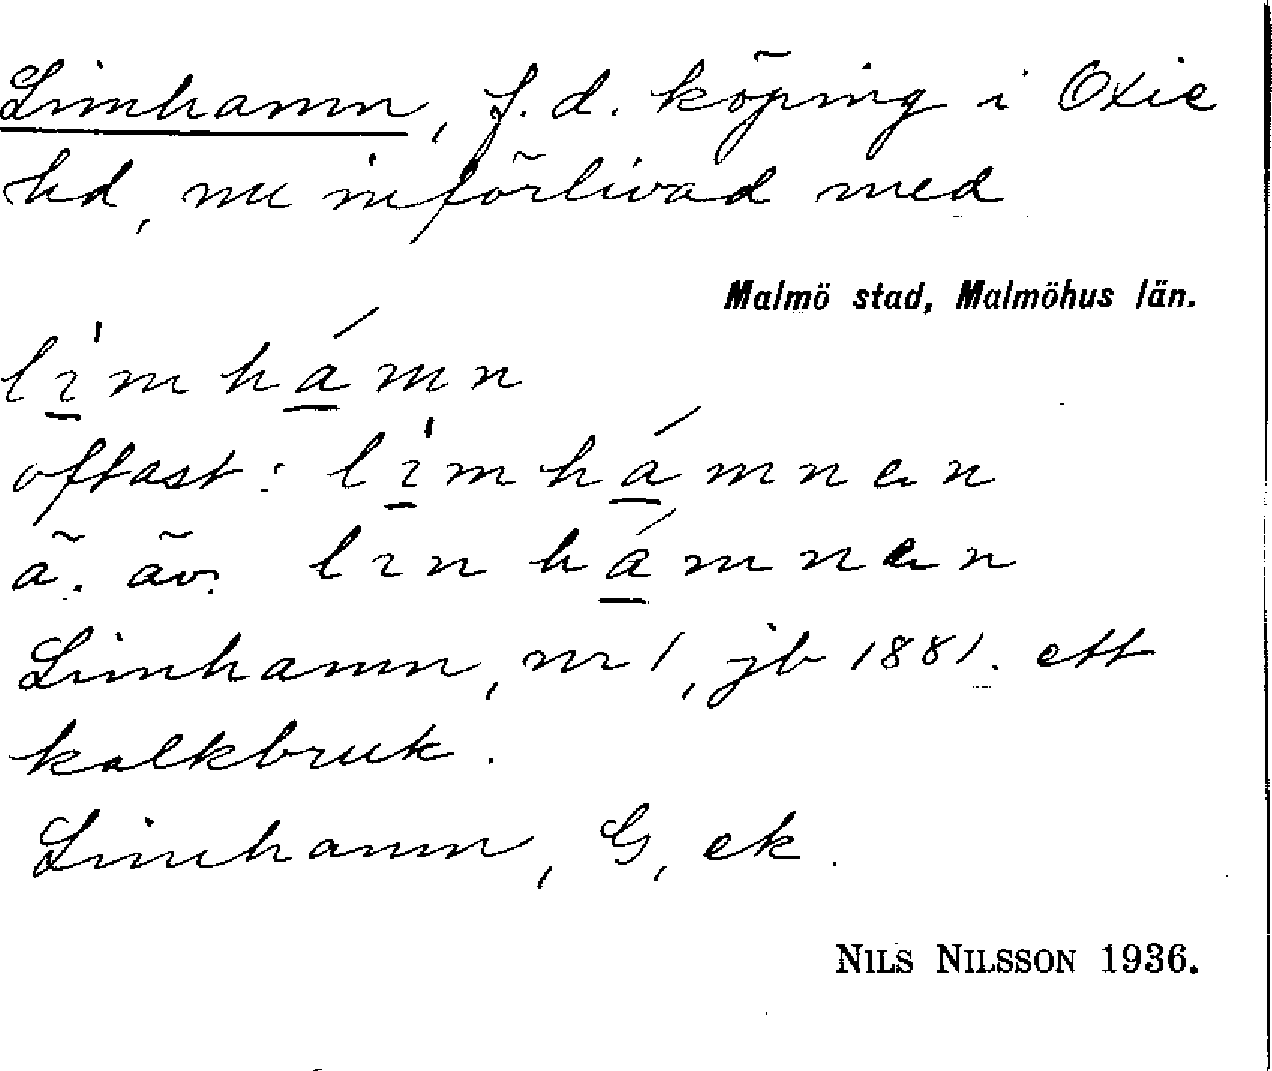 Limhamn, f.d. köping i Oxie
hd, nu införlivad med
Malmö stad, Malmöhus län.
lı̍mhámn
oftast: lı̍mhámnen
ä. äv. lınhámnen
Limhamn, nr 1, jb 1881. ett
kalkbruk.
Limhamn, G, ek.
NILS NILSSON 1936.